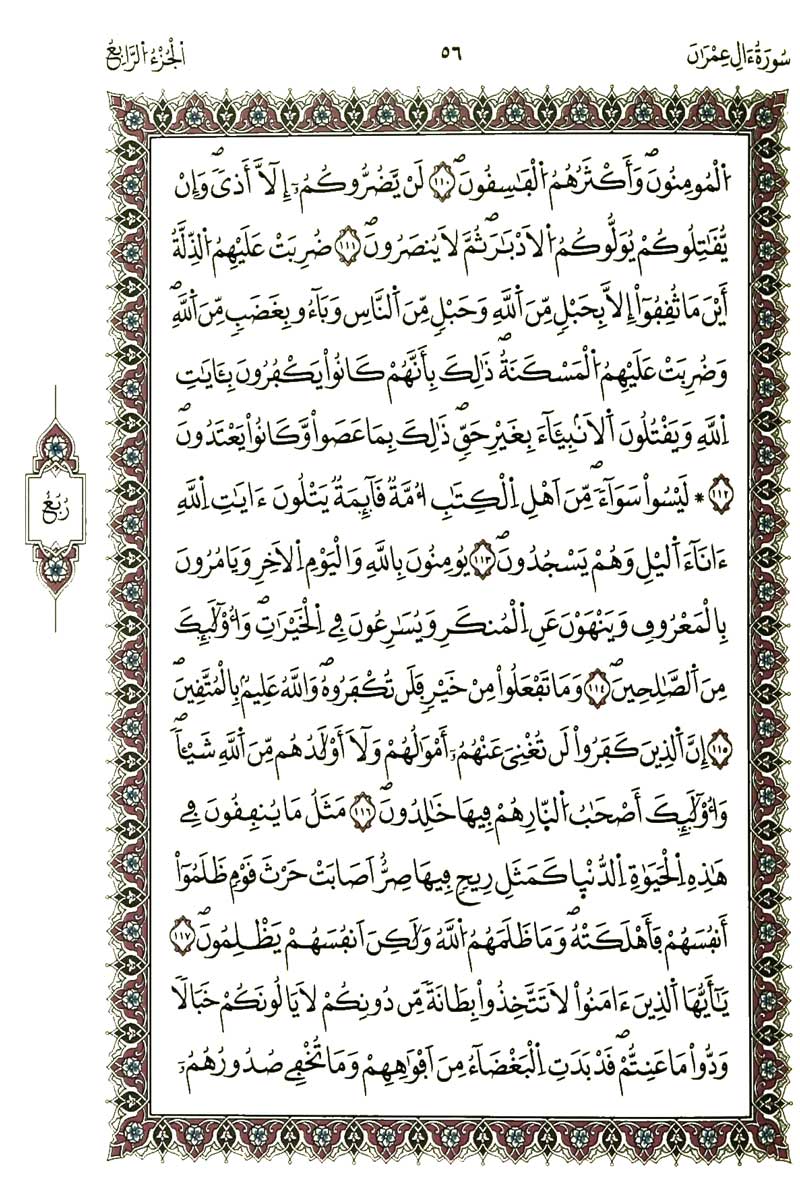 سُورَةُ ءَالِ عِمْرَٰنَ
٥٦
اَلْجُزْءُ اُلرَّابِعُ
اُلْمُومِنُونَۖ وَأَكْثَرُهُمُ اُلْفَٰسِقُونَۖ ١١٠ لَنْ يَّضُرُّوكُمُۥٓ إِلَّآ أَذىٗۖ وَإِنْ
يُّقَٰتِلُوكُمْ يُوَلُّوكُمُ اُلَادْبَٰرَۖ ثُمَّ لَا يُنصَرُونَۖ ١١١ ضُرِبَتْ عَلَيْهِمُ اُلذِّلَّةُ
أَيْنَ مَا ثُقِفُوٓاْ إِلَّا بِحَبْلٖ مِّنَ اَللَّهِ وَحَبْلٖ مِّنَ اَلنَّاسِ وَبَآءُو بِغَضَبٖ مِّنَ اَللَّهِۖ
وَضُرِبَتْ عَلَيْهِمُ اُلْمَسْكَنَةُۖ ذَٰلِكَ بِأَنَّهُمْ كَانُواْ يَكْفُرُونَ بِـَٔايَٰتِ
اِللَّهِ وَيَقْتُلُونَ اَلَانۢبِيَآءَ بِغَيْرِ حَقّٖۖ ذَٰلِكَ بِمَا عَصَواْ وَّكَانُواْ يَعْتَدُونَۖ
١١٢ * لَيْسُواْ سَوَآءٗۖ مِّنَ اَهْلِ اِلْكِتَٰبِ أُمَّةٞ قَآئِمَةٞ يَتْلُونَ ءَايَٰتِ اِللَّهِ
ءَانَآءَ اَليْلِ وَهُمْ يَسْجُدُونَۖ ١١٣ يُومِنُونَ بِاللَّهِ وَالْيَوْمِ اِلَاخِرِ وَيَامُرُونَ
بِالْمَعْرُوفِ وَيَنْهَوْنَ عَنِ اِلْمُنكَرِ وَيُسَٰرِعُونَ فِے اِلْخَيْرَٰتِۖ وَأُوْلَٰٓئِكَ
مِنَ اَلصَّٰلِحِينَۖ ١١٤ وَمَا تَفْعَلُواْ مِنْ خَيْرٖ فَلَن تُكْفَرُوهُۖ وَاللَّهُ عَلِيمُۢ بِالْمُتَّقِينَۖ
١١٥ إِنَّ اَلذِينَ كَفَرُواْ لَن تُغْنِيَ عَنْهُمُۥٓ أَمْوَٰلُهُمْ وَلَآ أَوْلَٰدُهُم مِّنَ اَللَّهِ شَيْـٔاٗۖ
وَأُوْلَٰٓئِكَ أَصْحَٰبُ اُلنّ۪ارِ هُمْ فِيهَا خَٰلِدُونَۖ ١١٦ مَثَلُ مَا يُنفِقُونَ فِے
هَٰذِهِ اِلْحَيَوٰةِ اِلدُّنْي۪ا كَمَثَلِ رِيحٖ فِيهَا صِرٌّ اَصَابَتْ حَرْثَ قَوْمٖ ظَلَمُوٓاْ
أَنفُسَهُمْ فَأَهْلَكَتْهُۖ وَمَا ظَلَمَهُمُ اُللَّهُ وَلَٰكِنَ اَنفُسَهُمْ يَظْلِمُونَۖ ١١٧
يَٰٓأَيُّهَا اَلذِينَ ءَامَنُواْ لَا تَتَّخِذُواْ بِطَانَةٗ مِّن دُونِكُمْ لَا يَالُونَكُمْ خَبَالٗا
وَدُّواْ مَا عَنِتُّمْۖ قَدْ بَدَتِ اِلْبَغْضَآءُ مِنَ اَفْوَٰهِهِمْ وَمَا تُخْفِے صُدُورُهُمُۥٓ
رُبُعُ